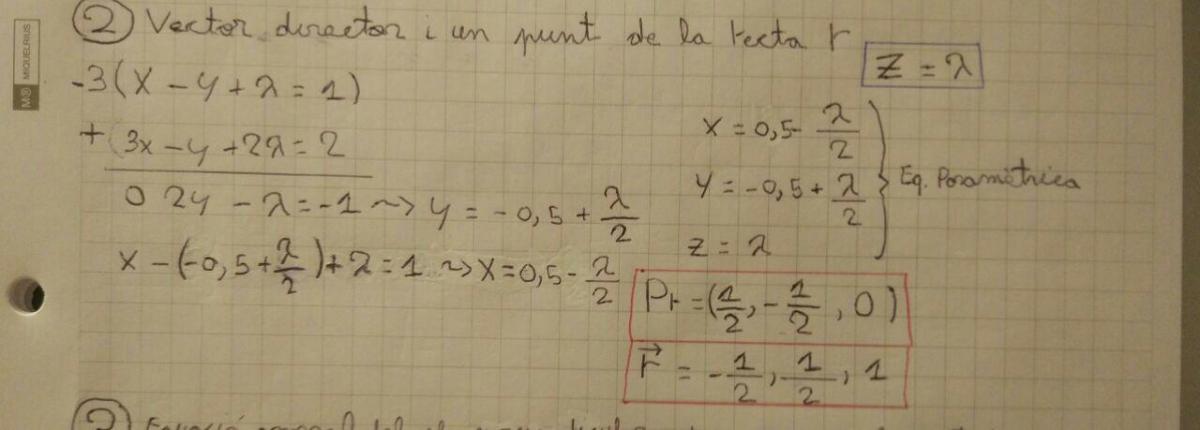 ② Vector director i un punt de la recta r
Z = λ
-3(x - y + λ = 1)
+ (3x - y + 2λ = 2
0 2y - λ = -1 ~> y = -0,5 + λ/2
x - (-0,5 + λ/2) + λ = 1 ~> x = 0,5 - λ/2
x = 0,5 - λ/2
y = -0,5 + λ/2
z = λ
Eq. Paramètrica
Pr = (1/2, -1/2, 0)
r⃗ = -1/2, 1/2, 1
M® MIQUELRIUS